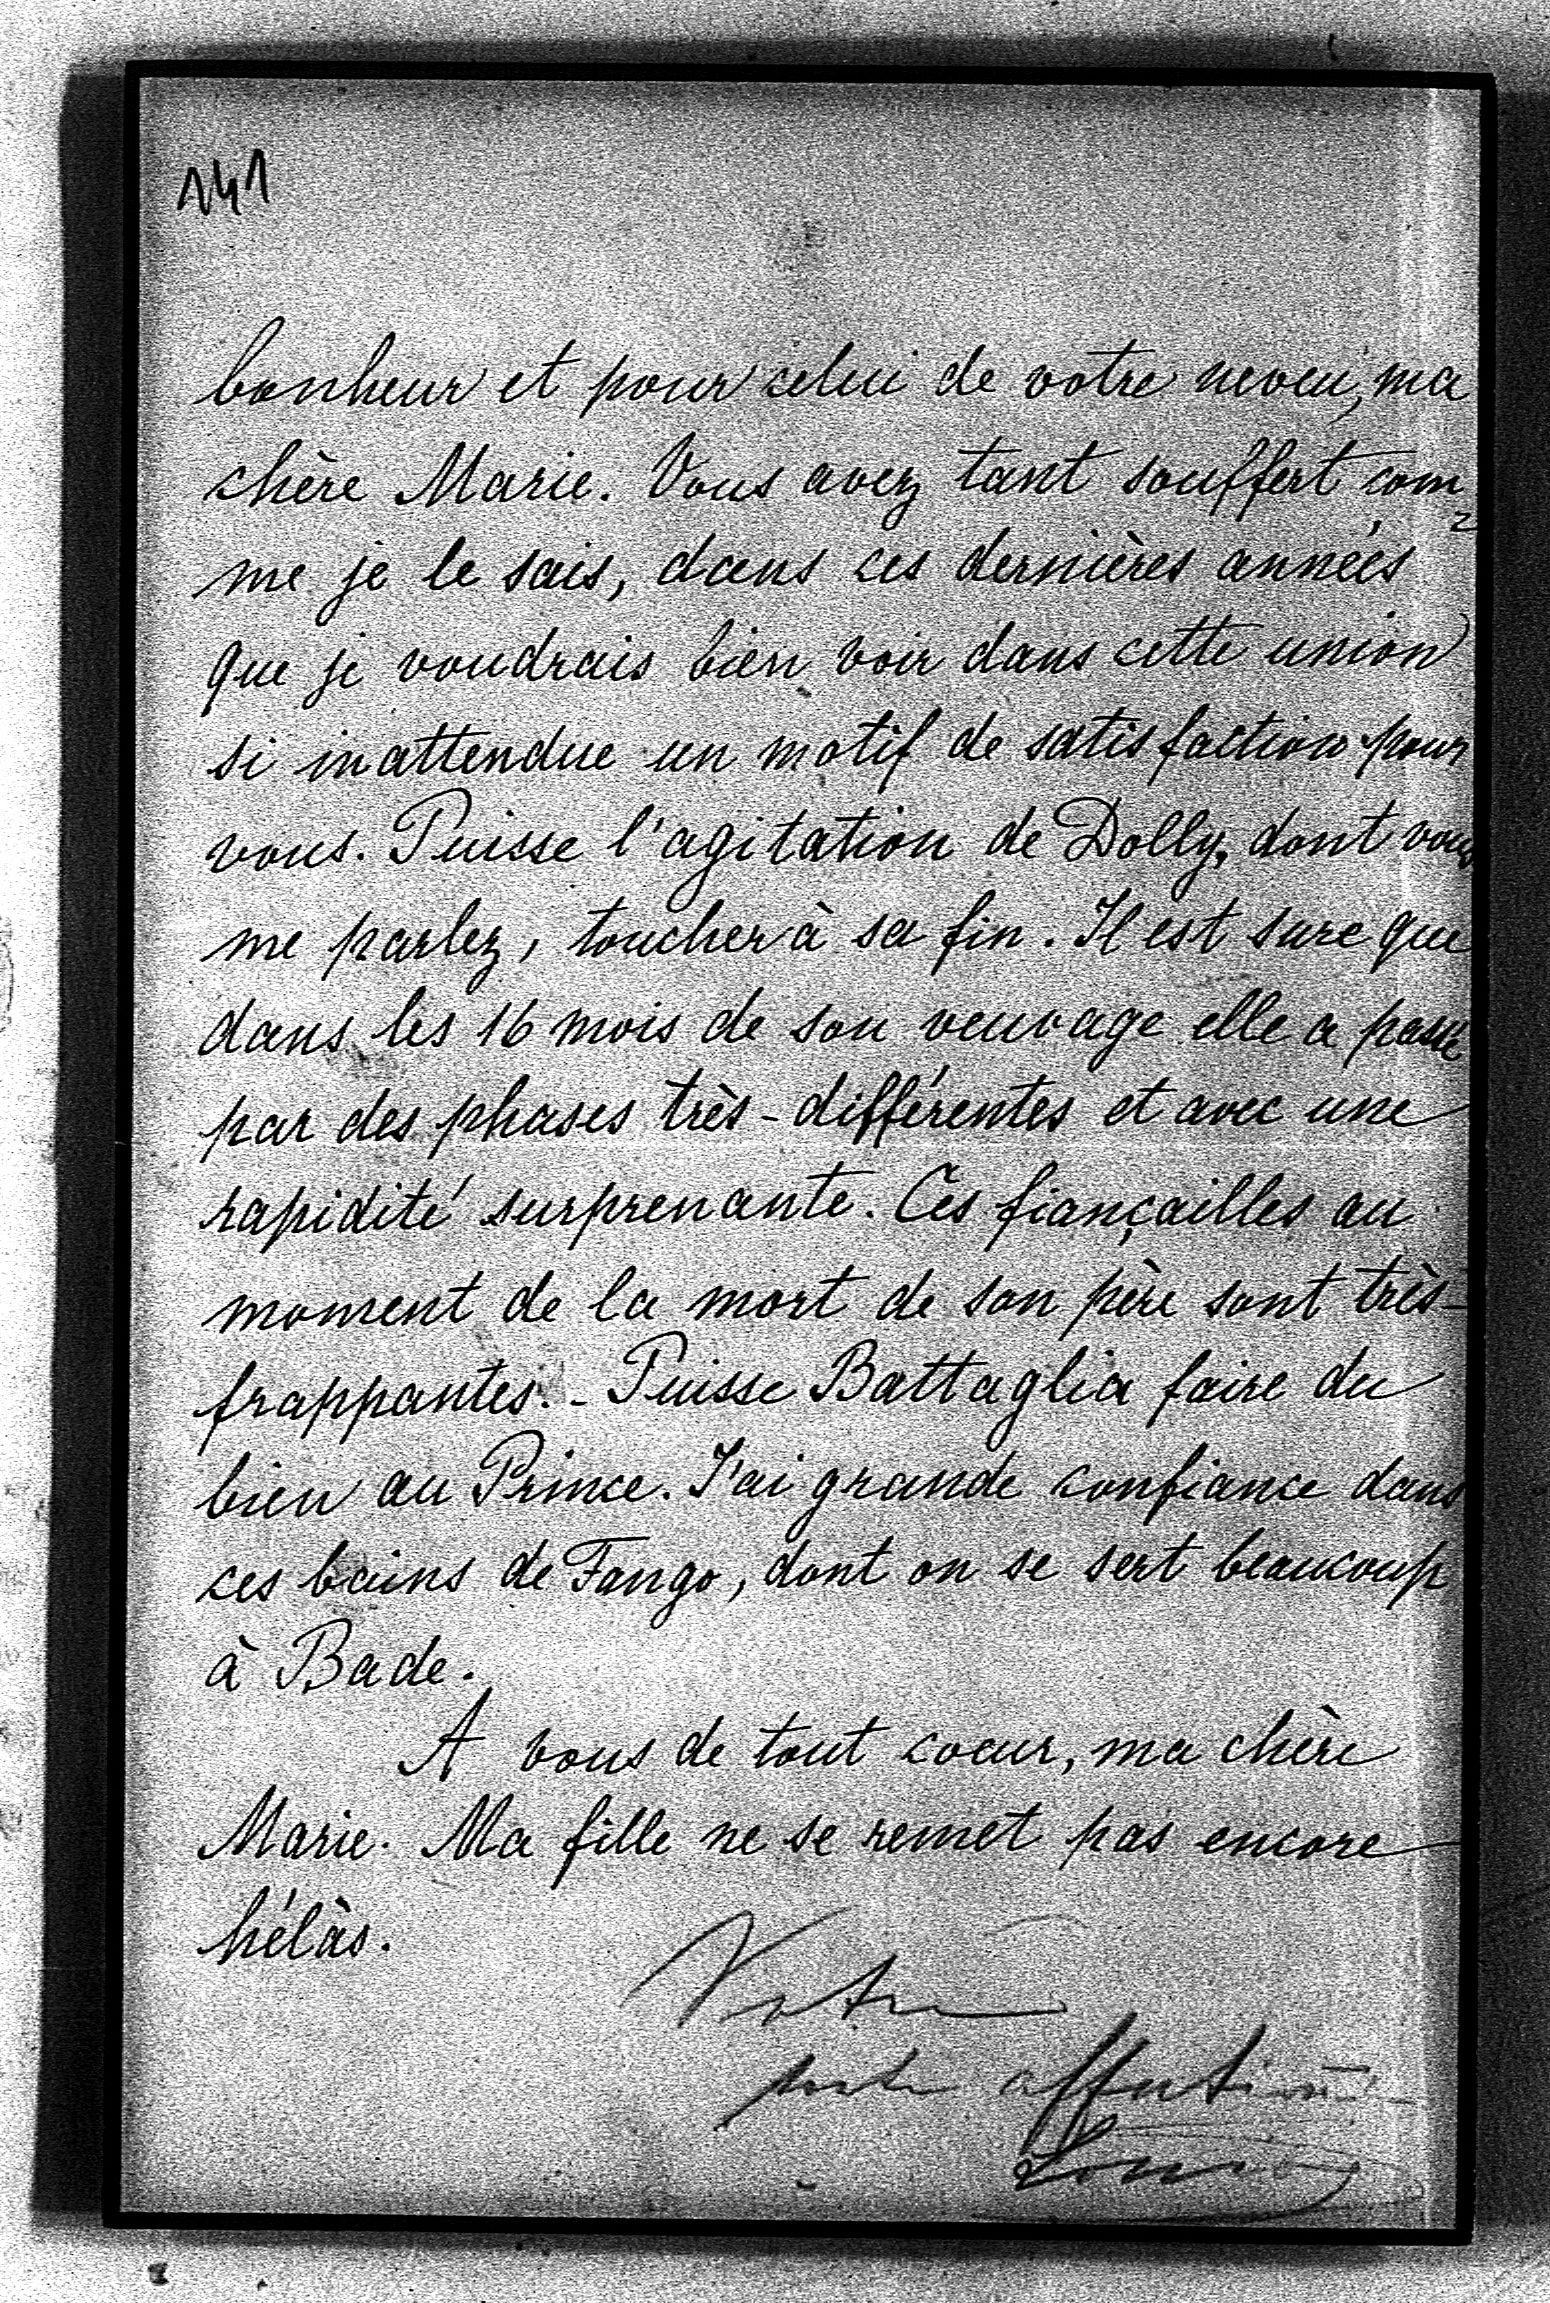 141
bonheur et pour celui de votre neveu, ma
chère Marie. Vous avez tant souffert, com=
me je le sais, dans ces dernières années
que je voudrais bien voir dans cette union
si inattendue un motif de satisfaction pour
vous. Puisse l'agitation de Dolly, dont vous
me parlez, toucher à sa fin. Il est sure que
dans les 16 mois de son veuvage elle a passé
par des phases très-différentes et avec une
rapidité surprenante. Ces fiançailles au
moment de la mort de son père sont très-
frappantes. - Puisse Battaglia faire du
bien au Prince. J'ai grande confiance dans
ces bains de Fango, dont on se sert beaucoup
à Bade.
A vous de tout coeur, ma chère
Marie. Ma fille ne se remet pas encore
hélàs.
Votre
Louise